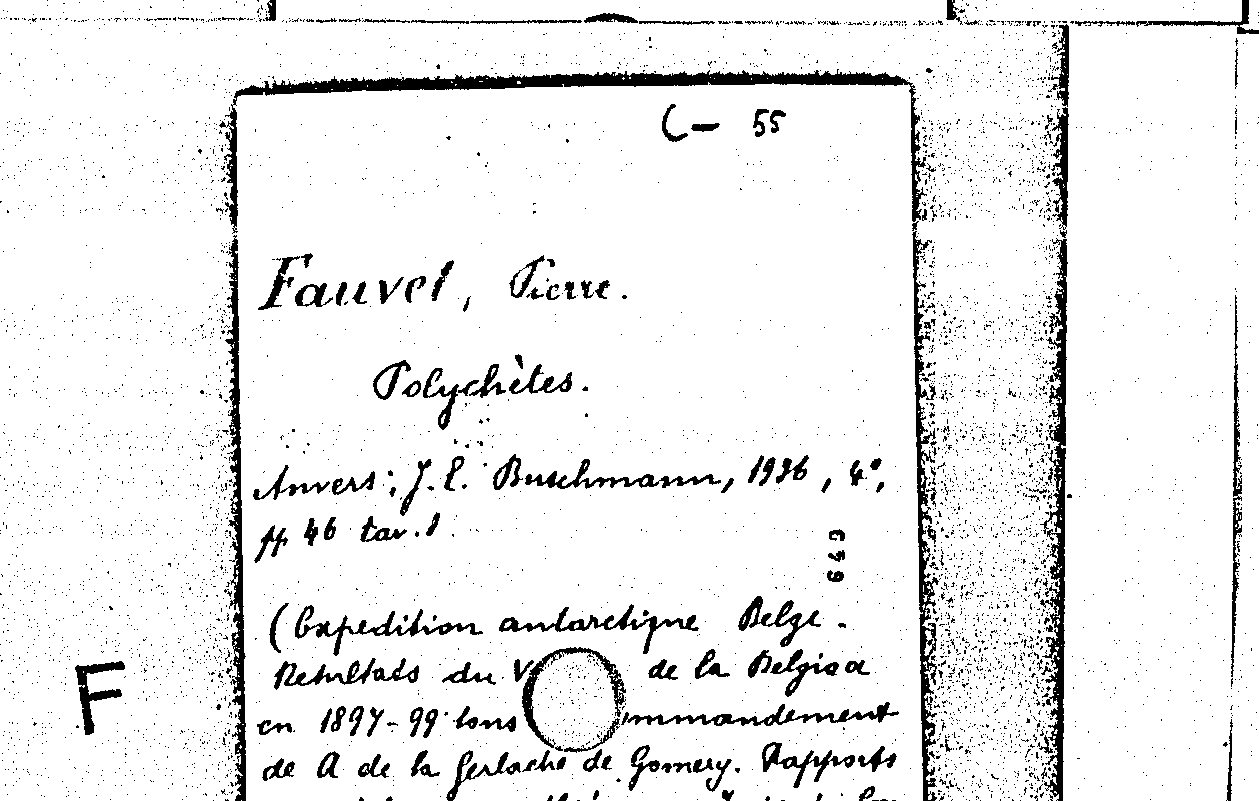 C- 55
Fauvel, Pierre.
Polychètes.
Anvers; J. E. Buschmann, 1936, 4°,
pp 46 tav. 1
649
(Expedition antarctique Belge.
Resultats du V de la Belgica
F
en 1897-99 sous ommandement
de A de la Gerlache de Gomery. Rapports